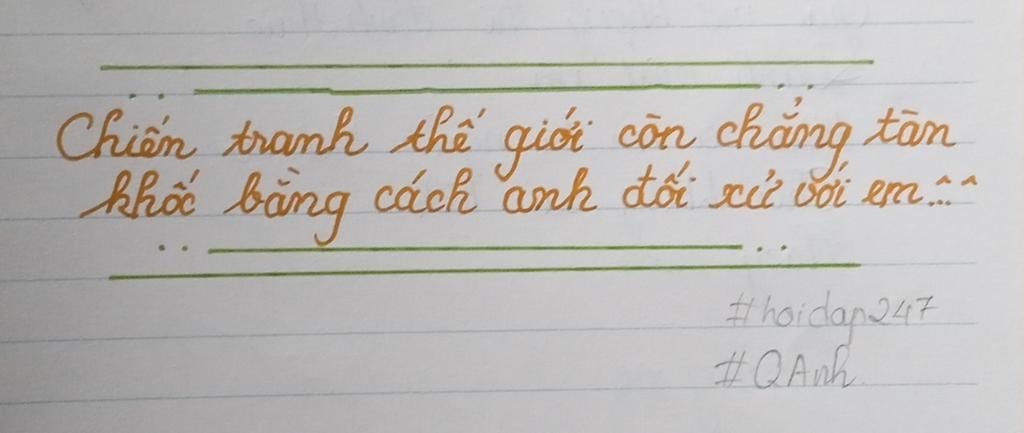 Chiến tranh thế giới còn chẳng tàn
khốc bằng cách anh đối xử với em..^^
#hoidap247
#QAnh